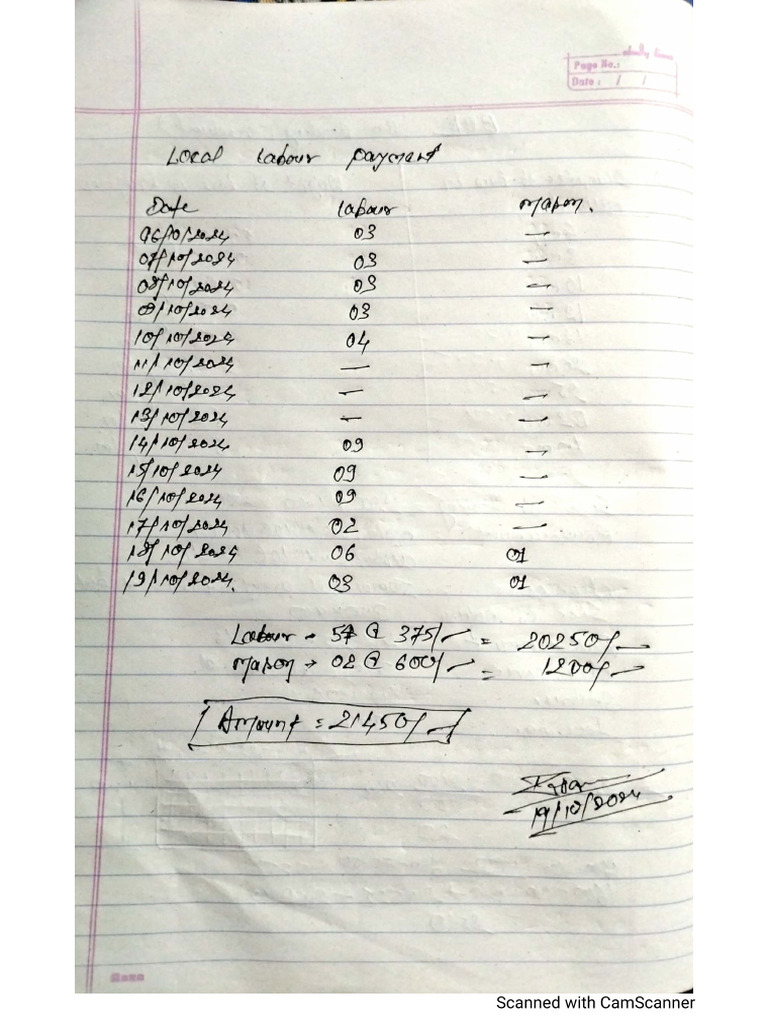 Page No.:
Date : / /
Local Labour payment
Date Labour Mason.
06/10/2024 03 —
07/10/2024 03 —
08/10/2024 03 —
09/10/2024 03 —
10/10/2024 04 —
11/10/2024 — —
12/10/2024 — —
13/10/2024 — —
14/10/2024 09 —
15/10/2024 09 —
16/10/2024 09 —
17/10/2024 02 —
18/10/2024 06 01
19/10/2024. 03 01
Labour → 54 @ 375/- = 20250/-
Mason → 02 @ 600/- = 1200/-
Amount = 21450/-
19/10/2024
Scanned with CamScanner